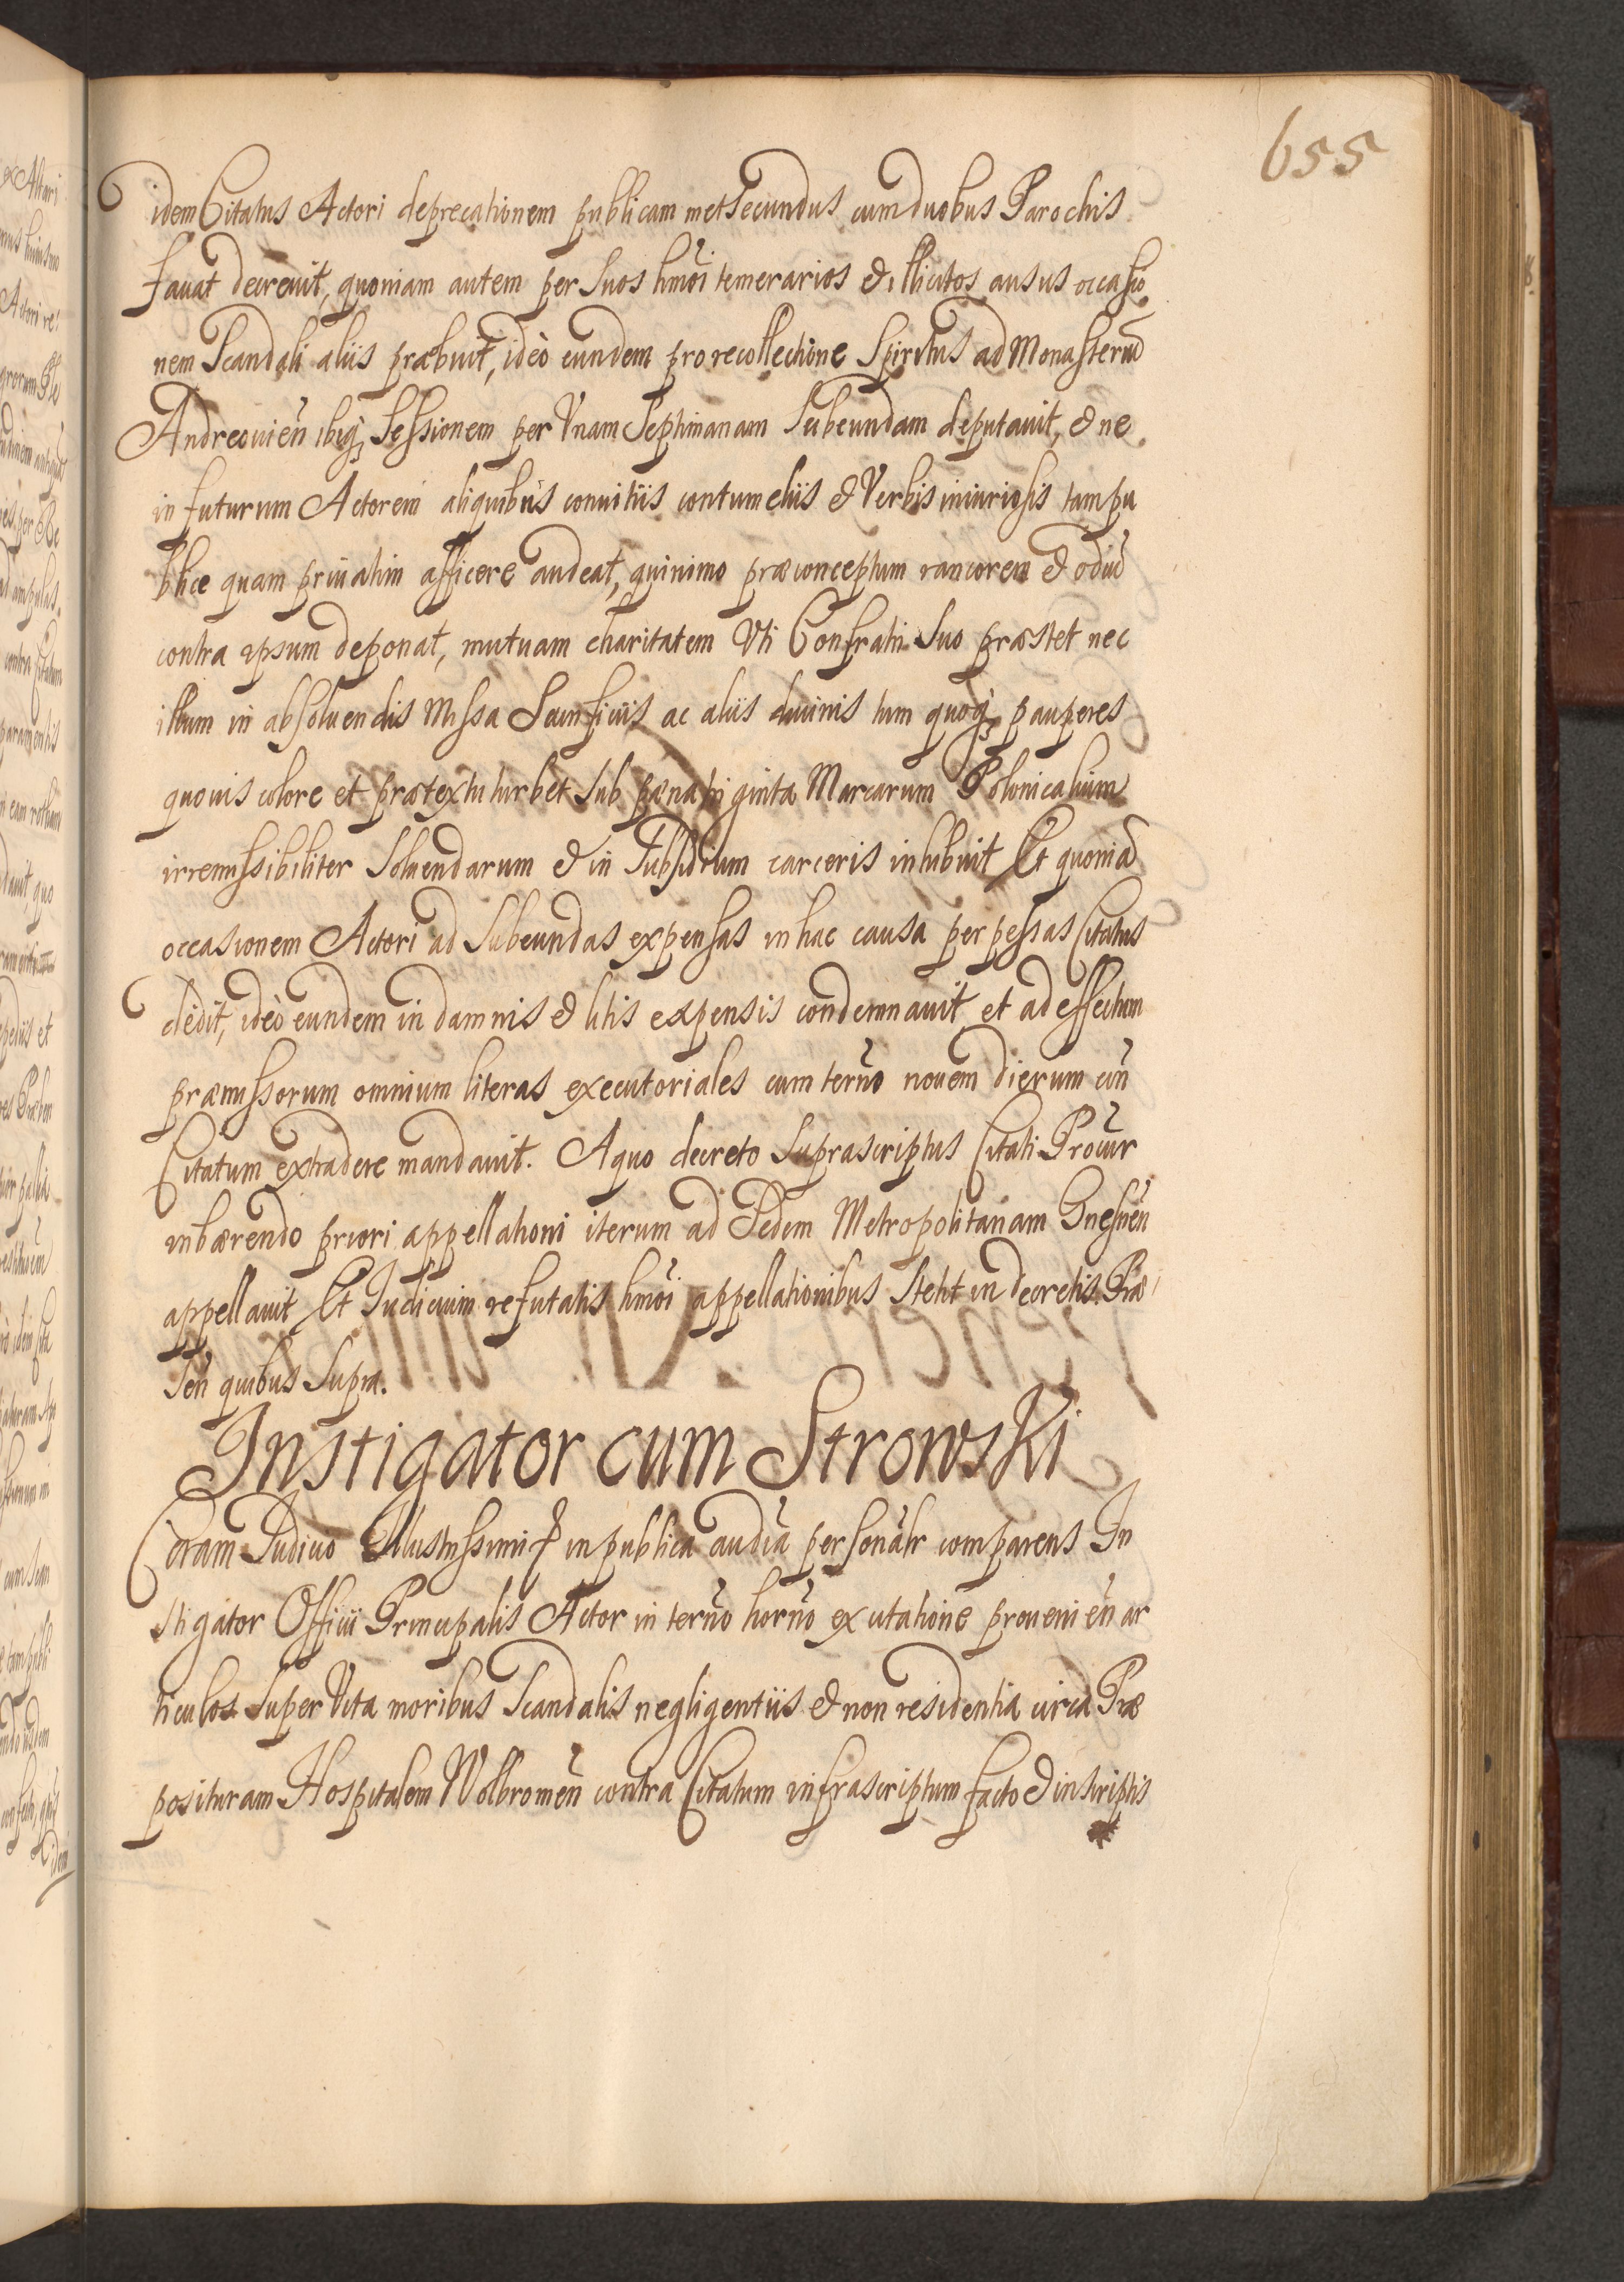 655
idem Citatus Actori deprecationem publicam metsecundus cum duobus Parochis
faciat decrevit, quoniam autem per suos hm̃oi temerarios & illicitos ausus occasio
nem Scandali aliis præbuit, ideò eundem pro recollectione Spiritus ad Monasteriũ
Andreovien̄ ibiq; Sessionem per Vnam Septimanam Subeundam deputavit, & ne
in futurum Actorem aliquibus convitiis contumeliis & Verbis iniuriosis tam pu
blice quam privatim afficere audeat, quinimo præconceptum rancorem & odiũ
contra ipsum deponat, mutuam charitatem Vti Confratri Suo præstet nec
illum in absolvendis Missæ Sacrificiis ac aliis divinis tum quoq; pauperes
quovis colore et prætextu turbet Sub pæna triginta Marcarum Polonicalium
irremissibiliter Solvendarum & in Subsidium carceris inhibuit Et quoniã
occasionem Actori ad Subeundas expensas in hac causa perpessas Citatus
dedit, ideò eundem in damnis & litis expensis condemnavit et ad effectum
præmissorum omnium literas executoriales cum terñno novem dierum cñ
Citatum extradere mandavit. A quo decreto Suprascriptus Citati Procur̃
inhærendo priori appellationi iterum ad Sedem Metropolitanam Gnesnen̄
appellavit Et Iudicium refutatis hm̃oi appellationibus Stetit in decretis Præ
sen̄ quibus Supra.
Instigator cum Strowski
Coram Iudicio Illustrissimi & in publica audĩa personalr̃ comparens In
stigator Officii Principalis Actor in terñno horñno ex citatione provenien̄ ar
ticulos Super Vita moribus Scandalis negligentiis & non residentia circa Præ
posituram Hospitalem Wolbromen̄ contra Citatum infrascriptum facto & in scriptis